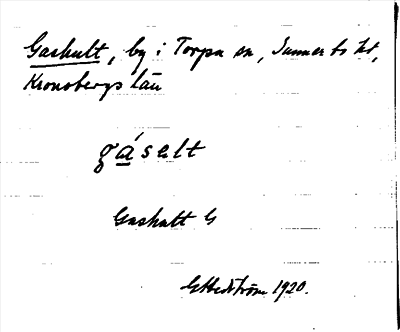 Gashult, by i Torpa sn, Sunnerbo hd,
Kronobergs län
gá̲sełt
Gashult G
G Hedström 1920.